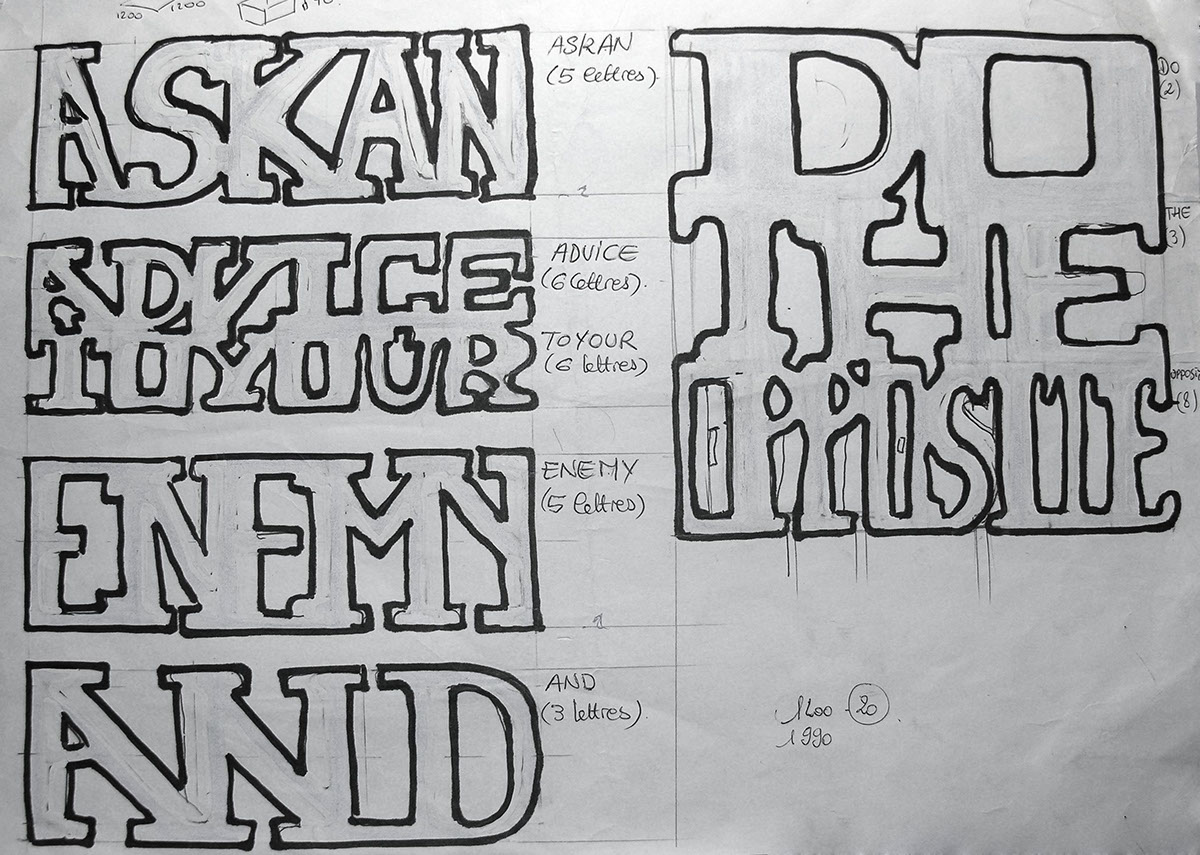 1200 1200
ASKAN
ASKAN
(5 lettres).
ADVICE
ADVICE
(6 lettres).
TOYOUR
TOYOUR
(6 lettres)
ENEMY
ENEMY
(5 lettres)
AND
AND
(3 lettres).
DO
DO
(2)
THE
THE
(3)
OPPOSITE
(8)
1200 - 20.
1990